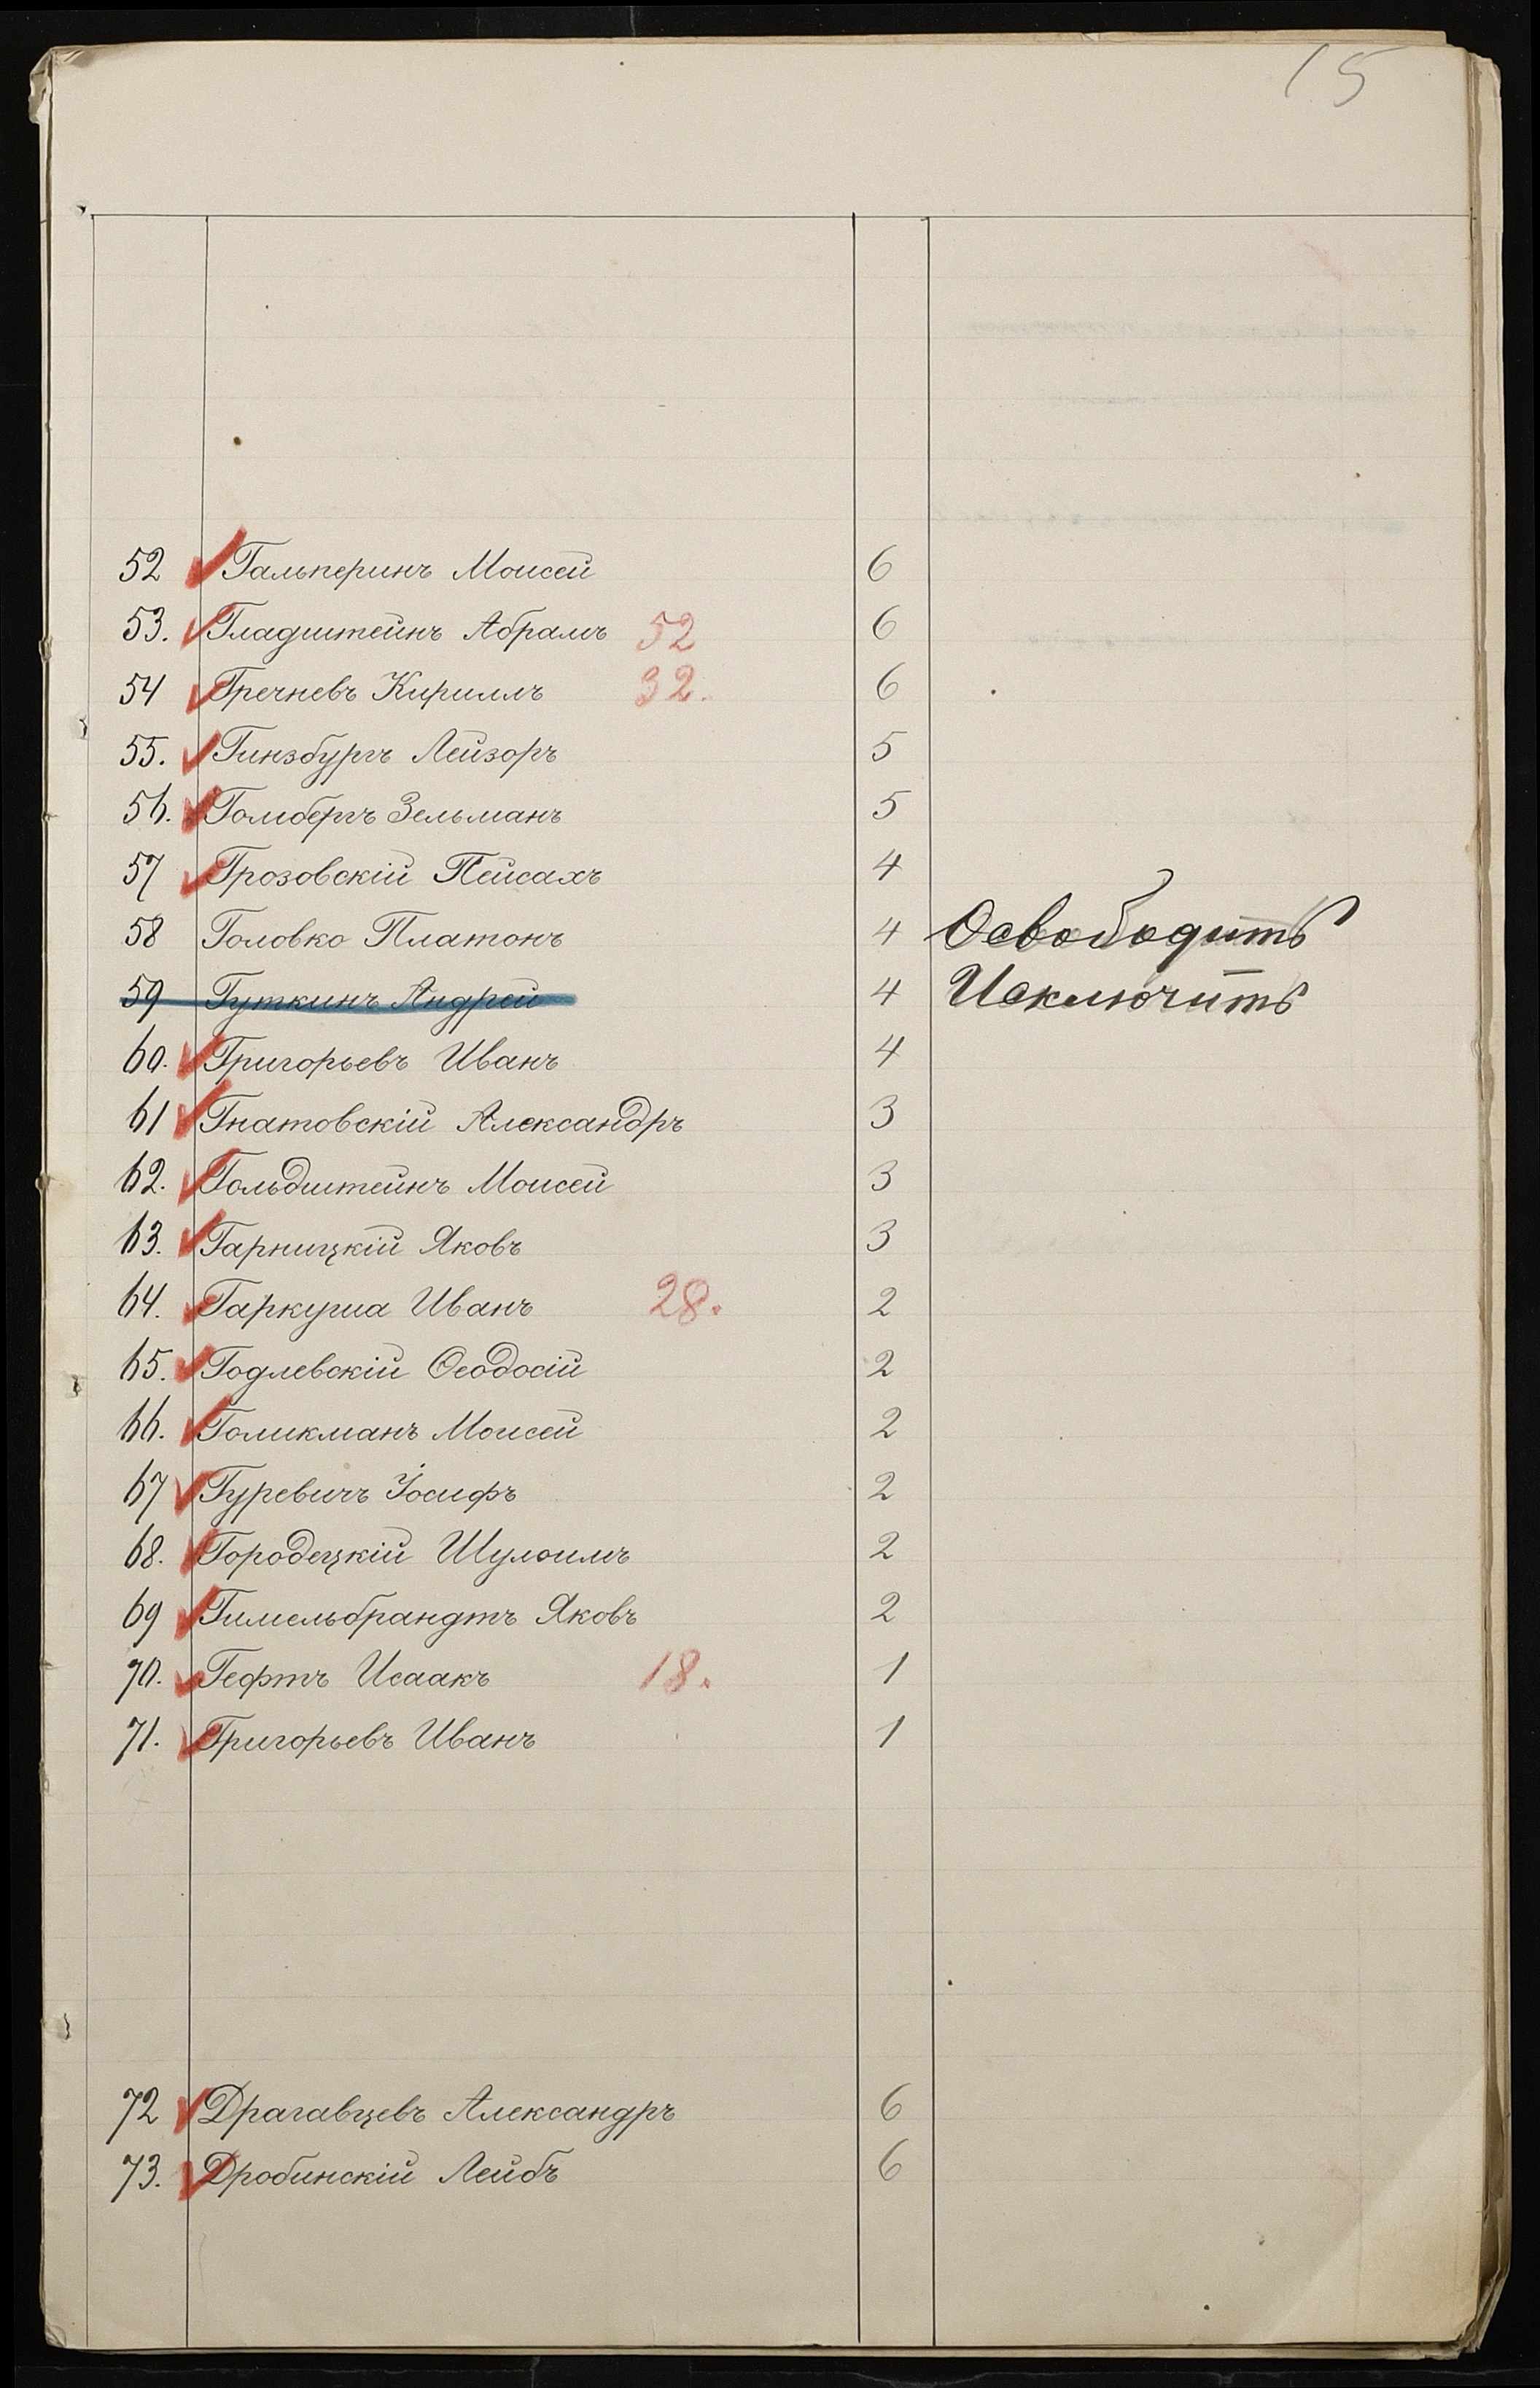 15
52 Гальперинъ Моисей 6
53. Гладштейнъ Абрамъ 52 6
54 Гречневъ Кириллъ 32. 6
55. Гинзбургъ Лейзоръ 5
56. Гомбергъ Зельманъ 5
57 Грозовскій Пейсахъ 4
58 Головко Платонъ 4 Освободить
59 Гуткинъ Андрей 4 Исключить
60. Григорьевъ Иванъ 4
61 Гнатовскій Александръ 3
62. Гольдштейнъ Моисей 3
63. Гарницкій Яковъ 3
64. Гаркуша Иванъ 28. 2
65. Годлевскій Ѳеодосій 2
66. Голикманъ Моисей 2
67 Гуревичъ Іосифъ 2
68. Городецкій Шулоимъ 2
69 Гимельбрандтъ Яковъ 2
70. Гефтъ Исаакъ 18. 1
71. Григорьевъ Иванъ 1
72 Драгавцевъ Александръ 6
73. Дробинскій Лейбъ 6